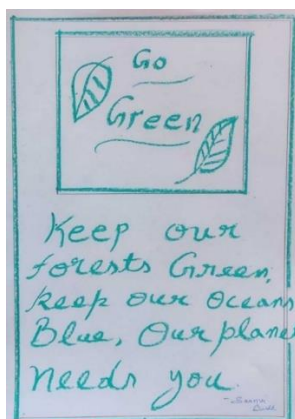 Go
Green
Keep our
forests Green,
keep our Oceans
Blue, Our plane
Needs you.